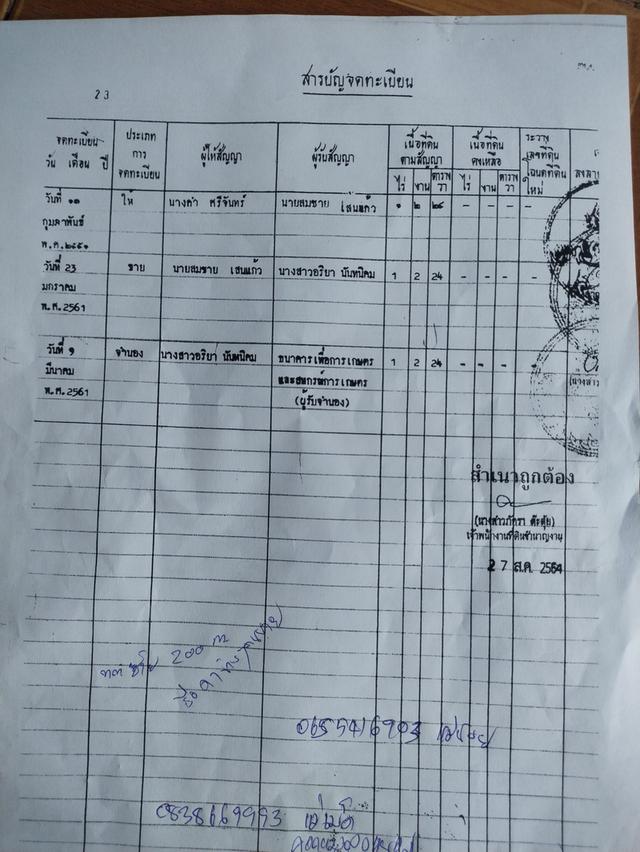 สารบัญจดทะเบียน
23
จดทะเบียน วัน เดือน ปี
ประเภท การ จดทะเบียน
ผู้ให้สัญญา
ผู้รับสัญญา
เนื้อที่ดิน ตามสัญญา
เนื้อที่ดิน คงเหลือ
ระวาง เลขที่ดิน โฉนดที่ดิน ใหม่
ไร่ งาน ตาราง วา ไร่ งาน ตาราง วา
วันที่ ๑๓ ให้ นางคำ ศรีจันทร์ นายสมชาย เสนแก้ว ๑ ๒ ๒๔ - - - -
กุมภาพันธ์
พ.ศ.๒๕๕๑
วันที่ 23 ขาย นายสมชาย เสนแก้ว นางสาวอริยา นันทนิคม 1 2 24 - - - -
มกราคม
พ.ศ.2561
วันที่ ๑ จำนอง นางสาวอริยา นันทนิคม ธนาคารเพื่อการเกษตร 1 2 24 - - - -
มีนาคม และสหกรณ์การเกษตร
พ.ศ.2561 (ผู้รับจำนอง)
(นางสาว
สำเนาถูกต้อง
เจ้าพนักงานที่ดินชำนาญงาน
27 ส.ค. 2564
200 m
0655416903
0838669993